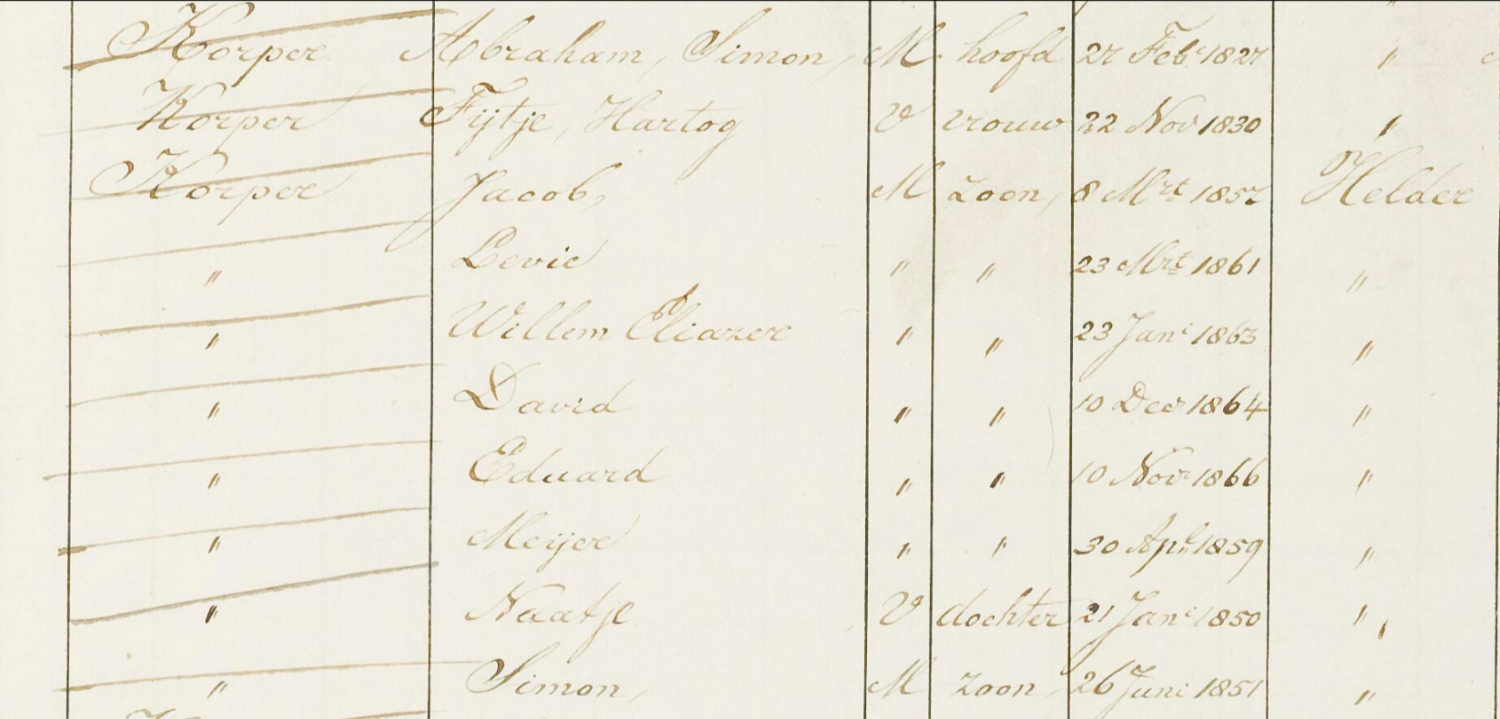 Korper Abraham, Simon, M hoofd 27 Feb 1827 "
Korper Fijtje, Hartog V vrouw 22 Nov 1830 "
Korper Jacob, M zoon, 8 Mrt 1857 Helder
" Levie " " 23 Mrt 1861 "
" Willem Eliazer " " 23 Jan 1863 "
" David " " 10 Dec 1864 "
" Eduard " " 10 Nov 1866 "
" Meijer " " 30 Apl 1859 "
" Naatje V dochter 21 Jan 1850 "
" Simon, M zoon, 26 Juni 1851 "